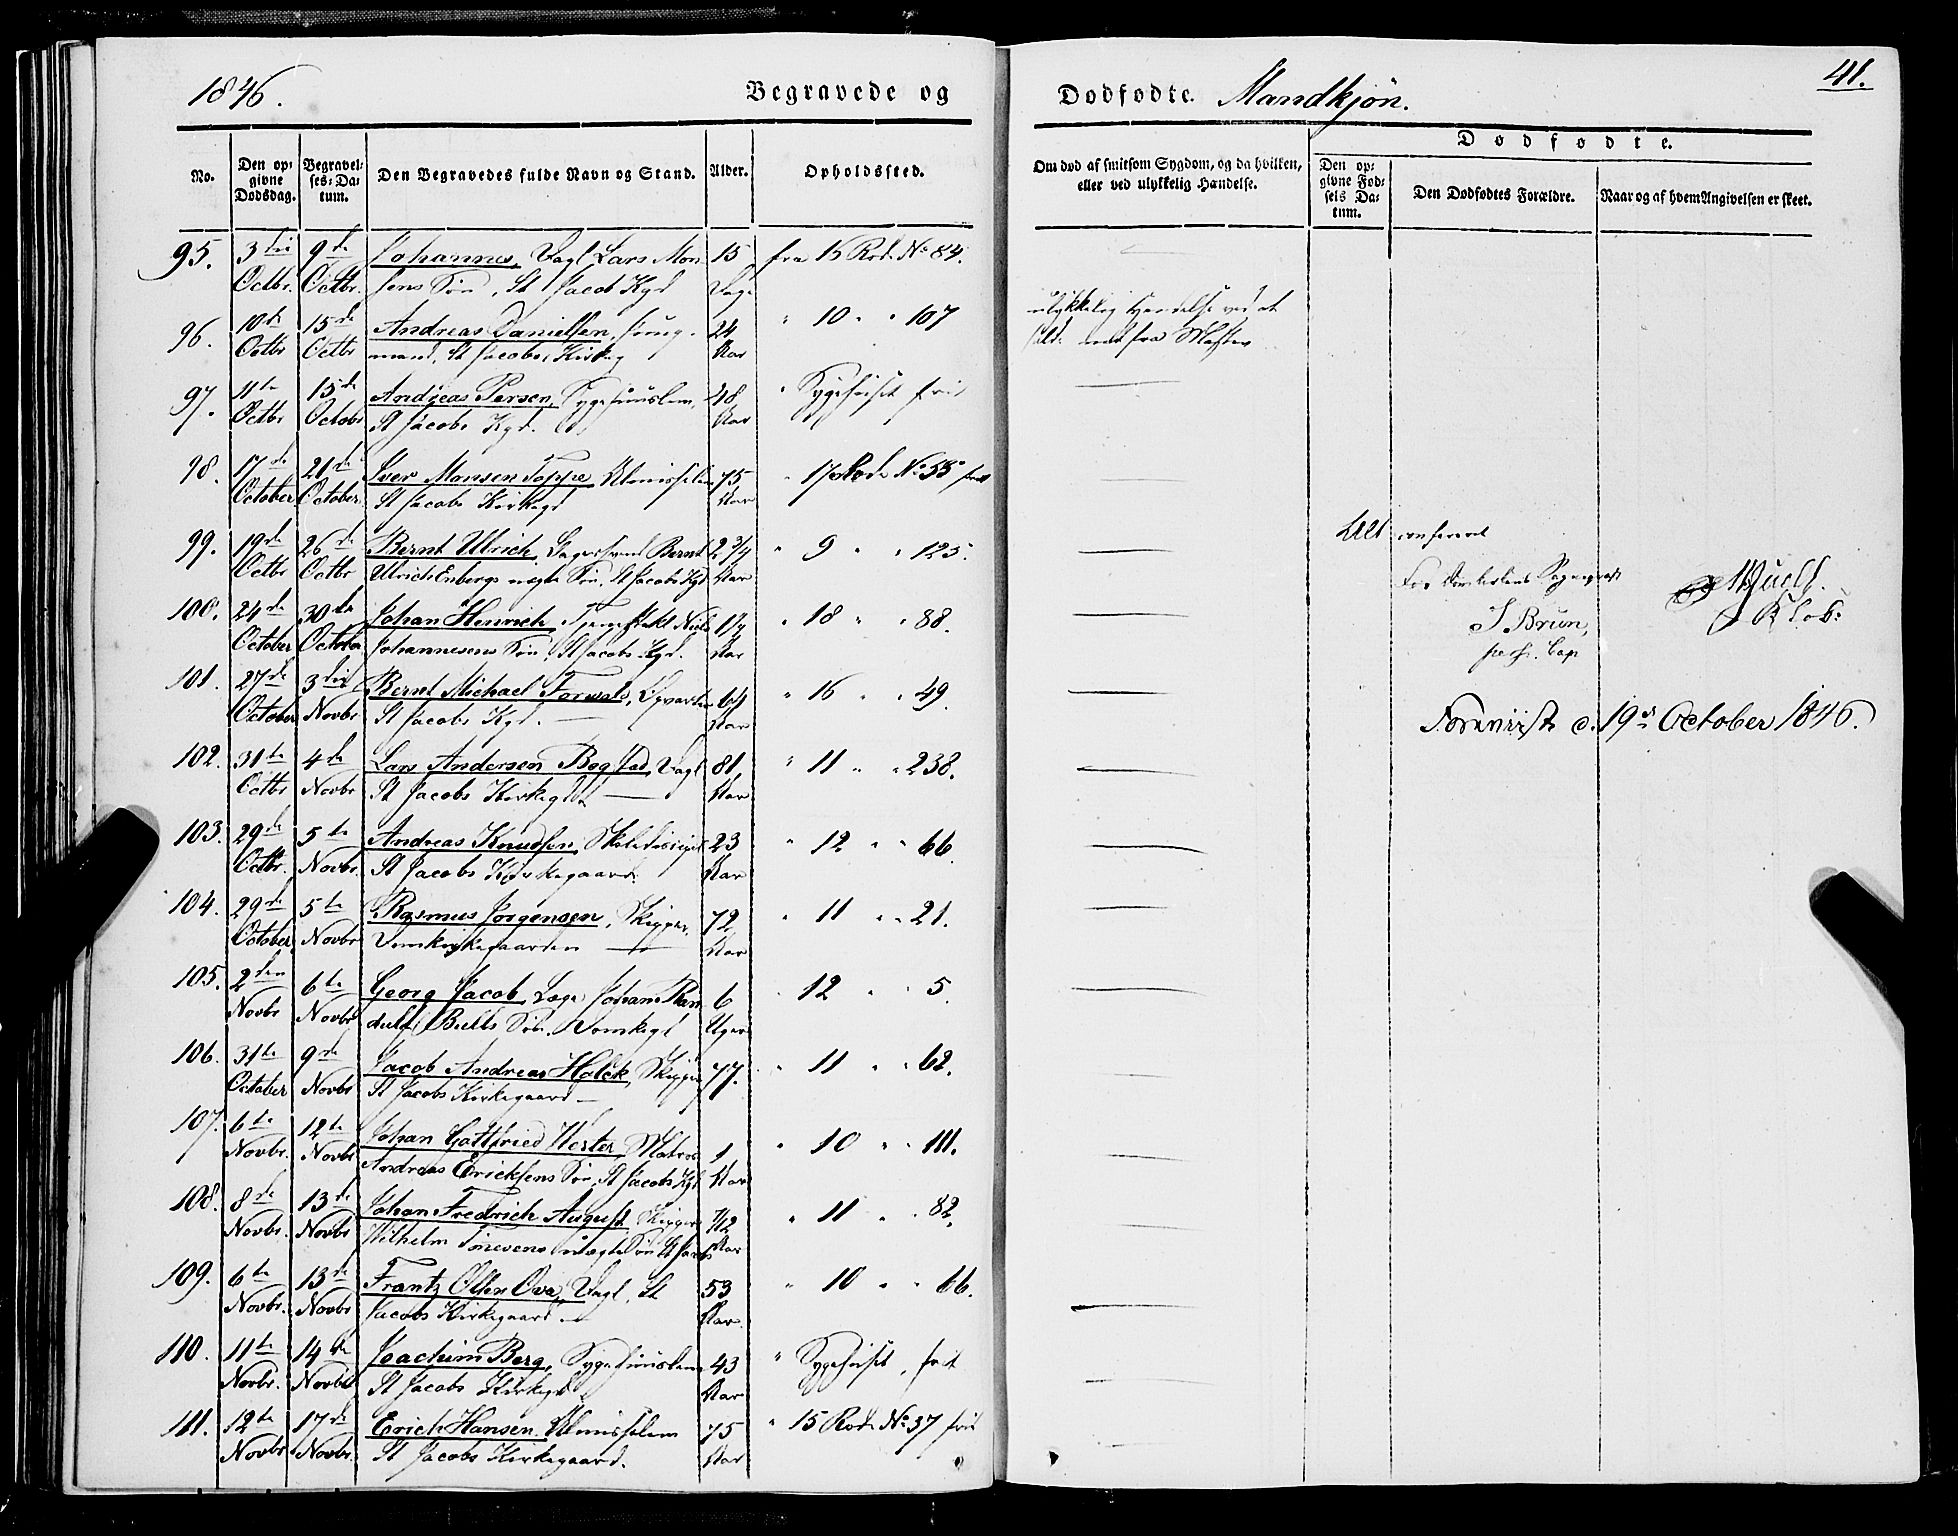 1846.
Begravede og
Dødfødte. Mandkjön.
41.
No.
Den op-
givne
Dødsdag.
Begravel-
ses-Da-
tum.
Den Begravedes fulde Navn og Stand.
Alder.
Opholdssted.
Om død af smitsom Sygdom, og da hvilken,
eller ved ulykkelig Hændelse.
Dødfødte.
Den op-
givne Fød-
sels Da-
tum.
Den Dødfødtes Forældre.
Naar og af hvem Angivelsen er skeet.
95. 3die 9de Johannes, Dagl. Lars Mon 15 fra 15 Rode No 84.
Octbr. Octbr. sens Søn, St Jacob Kgd Dage
96. 10de 15de Andreas Danielsen, 24 " 10 " " 107 ulykkelig Hændelse ved at
Octbr Octbr mand, St Jacobs Kirkeg Aar falde ned fra Masten
97. 11te 15de Andreas Persen, Sygehuuslem, 48 " Sygehuset frit
Octbr Octobr St Jacobs Kgd. Aar
98. 17de 21de Iver Monsen Toppe, Almisselem 75 " 17 Rode No 55 frit
October October. St Jacobs Kirkegd Aar
99. 19de 26de Bernt Ulrich, Bernt 2 3/4 " 9 " " 125.
Octbr Octbr Ulrich Enbergs ægte Søn, St Jacobs Kgd Aar
Alt confereret
For Domkirkens Sogneprest
J Brun,
pers. Cap
Klok:
100. 24de 30de Johan Henrich, Niels 1/4 " 18 " " 88.
October October Johannesens Søn, St Jacobs Kgd. Aar
101. 27de 3die Bernt Michael, 64 " 16 " " 49.
October Novbr St Jacobs Kgd. Aar
Foreviist d. 19de October 1846.
102. 31te 4de Lars Andersen Bogstad, Dagl 81 " 11 " " 238.
Octbr Novbr St Jacobs Kirkegd Aar
103. 29de 5te Andreas Knudsen, 23 " 12 " " 66.
Octbr. Novbr. St Jacobs Kirkegaard. Aar
104. 29de 5te Rasmus Jørgensen, Skipper, 72 " 11 " " 21.
October Novbr Domkirkegaarden Aar
105. 2den 6te Georg Jacob, Læge Johan Ran 6 " 12 " " 5.
Novbr Novbr dulf Bulls Søn. Domkgd Uger
106. 31te 9de Jacob Andreas Holck, Skipper 77. " 11 " " 62.
October Novbr St Jacobs Kirkegaard
107. 6te 12te Johan Gottfried Hester, Matros 1 " 10 " " 111.
Novbr. Novbr Andreas Ericksens Søn, St Jacobs Kgd Aar
108. 8de 13de Johan Fredrich August, Skipper 7/12 " 11 " " 82.
Novbr. Novbr Wilhelm Tönesens uægte Søn St Jacobs Aar
109. 6te 13de Frantz Olsen Ova, Dagl, St 53 " 10 " " 66.
Novbr. Novbr Jacobs Kirkegaard. Aar.
110. 11te 14de Joachim Berg, Sygehuuslem 43 " Sygehuset, frit
Novbr. Novbr St Jacobs Kirkegd Aar
111. 12te 17de Erich Hansen. Almisselem 75 " 15 Rode No 37 frit
Novbr Novbr. St Jacobs Kirkegaard. Aar